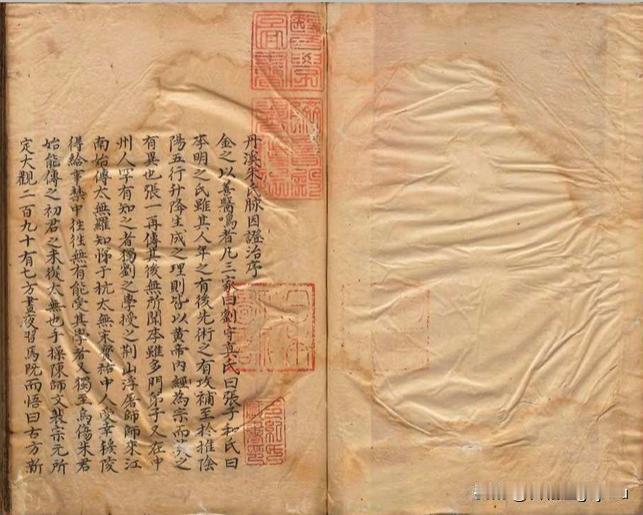 丹溪朱氏脉因證治序
金之以善醫鳴者凡三家曰劉守真氏曰張子和氏曰
李明之氏雖其人年之有後先術之有攻補至於推陰
陽五行升降生成之理則皆以黄帝内經為宗而莫之
有異也張一再傳其後無所聞李雖多門弟子又在中
州人罕有知之者獨劉之學授之荆山浮屠師師來江
南始傳太無羅知悌于杭太無宋寶祐中人受幸穆陵
得給事禁中往往無有能受其學者又獨至烏傷朱君
始能傳之初君之未從太無也手操陳師文裴宗元所
定大觀二百九十有七方晝夜習焉既而悟曰古方新